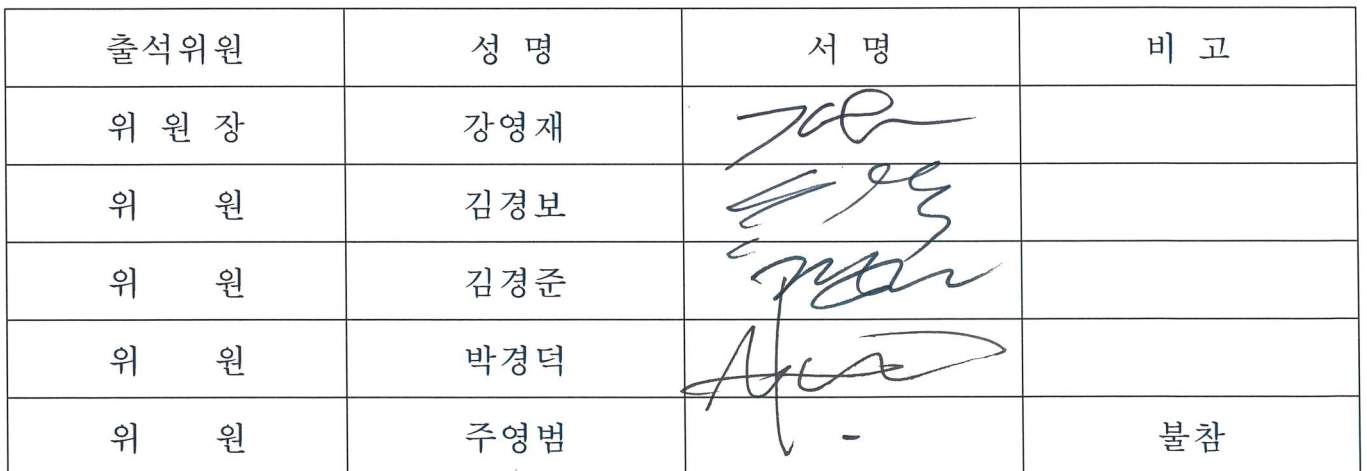 출석위원 성 명 서 명 비 고
위 원 장 강영재
위 원 김경보
위 원 김경준
위 원 박경덕
위 원 주영범 - 불참